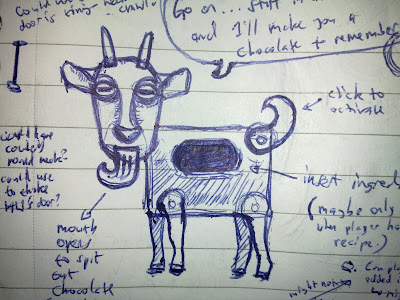 Could
door is king
Go on... stuff
and I'll make you a
chocolate to remember
click to
activate
could have
cowbell
round neck?
could use
to
door?
insert
(maybe only
when player has
recipe.)
mouth
opens
to spit
out
chocolate
might
added